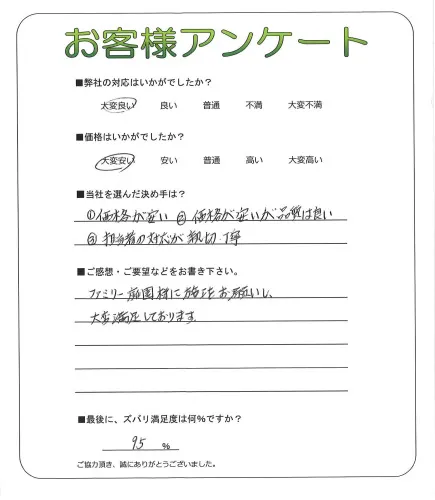 お客様アンケート
■弊社の対応はいかがでしたか？
大変良い 良い 普通 不満 大変不満
■価格はいかがでしたか？
大変安い 安い 普通 高い 大変高い
■当社を選んだ決め手は？
①価格が安い ②価格が安いが品質は良い
③担当者の対応が親切・丁寧
■ご感想・ご要望などをお書き下さい。
ファミリー庭園様に施工をお願いし、
大変満足しております。
■最後に、ズバリ満足度は何％ですか？
95 %
ご協力頂き、誠にありがとうございました。